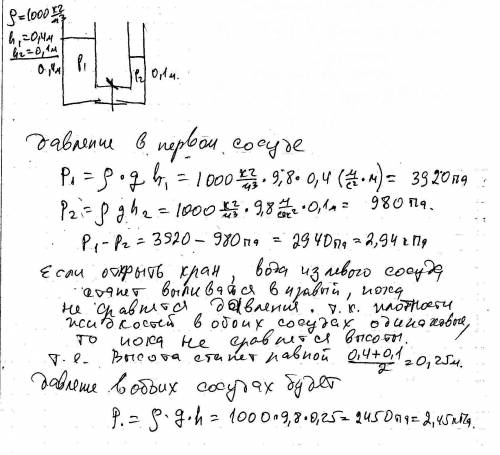 ρ=1000 кг/м³
h₁=0,4м
h₂=0,1м
0,4м
P₁
P₂ 0,1м.
Давление в первом сосуде
P₁ = ρ·g h₁ = 1000 кг/м³ · 9,8 · 0,4 (м/с² · м) = 3920 Па
P₂ = ρ g h₂ = 1000 кг/м³ · 9,8 м/с² · 0,1м = 980 Па.
P₁ - P₂ = 3920 - 980 Па = 2940 Па = 2,94 кПа
Если открыть кран, вода из левого сосуда
станет выливатся в правый, пока
не сравнятся давления. т.к. плотности
жидкостей в обоих сосудах одинаковые,
то пока не сравнятся высоты.
т.е. Высота станет равной (0,4+0,1)/2 = 0,25м.
Давление в обоих сосудах будет
P = ρ·g·h = 1000·9,8·0,25 = 2450 Па = 2,45 кПа.